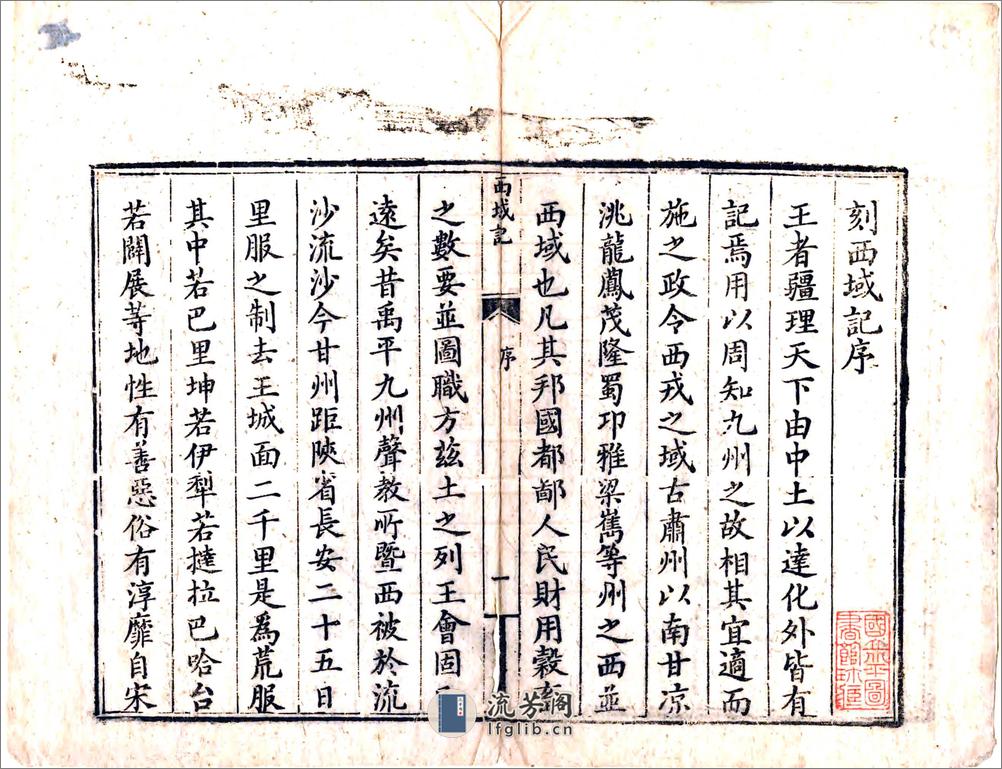 刻西域記序
王者疆理天下由中土以達化外皆有
記焉用以周知九州之故相其宜適而
施之政令西戎之域古肅州以南甘凉
洮龍鳳茂隆蜀卭雅梁嶲等州之西並
西域也凡其邦國都鄙人民財用穀
西域記
序
一
之數要並圖職方茲土之列王會固
遠矣昔禹平九州聲教所暨西被於流
沙流沙今甘州距陝省長安二十五日
里服之制去王城面二千里是為荒服
其中若巴里坤若伊犁若撻拉巴哈台
若闢展等地性有善惡俗有淳靡自宋
流芳閣
lfglib.cn